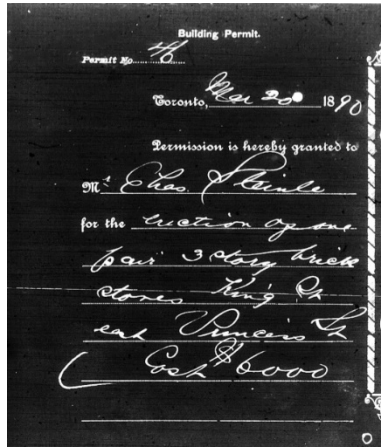 Building Permit.
Permit No. 46
Toronto, Mar 20 1890
Permission is hereby granted to
Mr Chas. Steinle
for the erection of one
pair 3 story brick
stores King St
east Princess St
Cost $6000